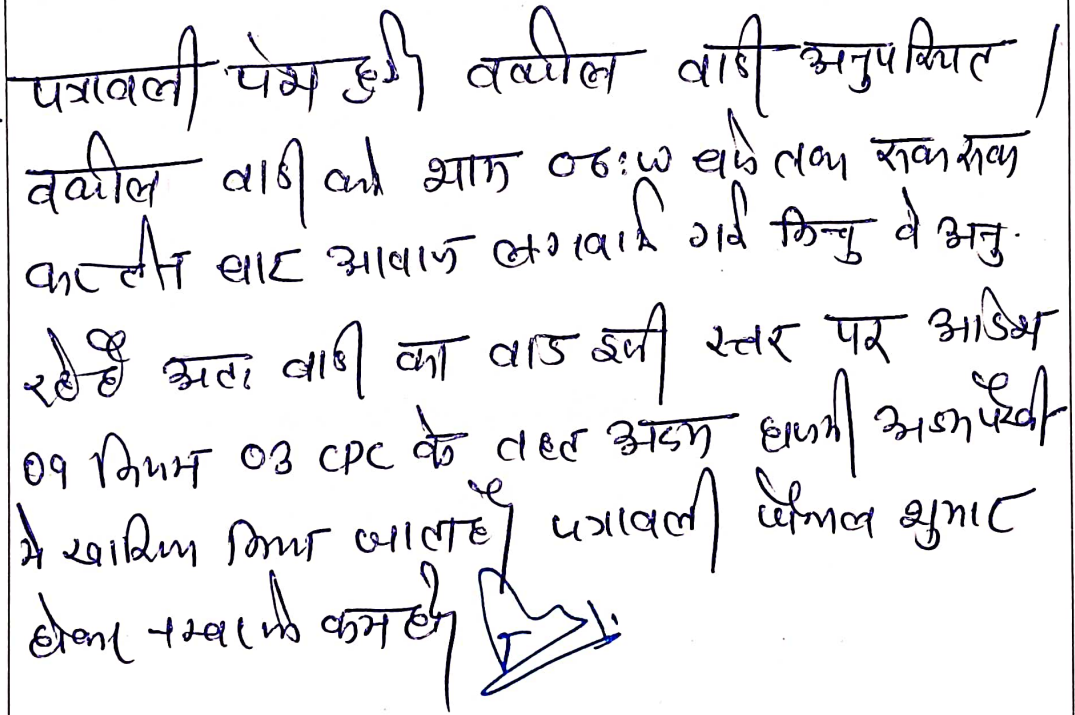 पत्रावली पेश हुई। वकील वादी अनुपस्थित।
वकील वादी को शाम 06:00 बजे तक रूक रूक
कर तीन बार आवाज लगवाई गई किन्तु वे अनु.
रहे है अतः वादी का वाद इसी स्तर पर आदेश
09 नियम 03 CPC के तहत अदम हाजरी अदम पैरवी
मे खारिज किया जाता है। पत्रावली फैसल शुमार
होकर नम्बर से कम हो।